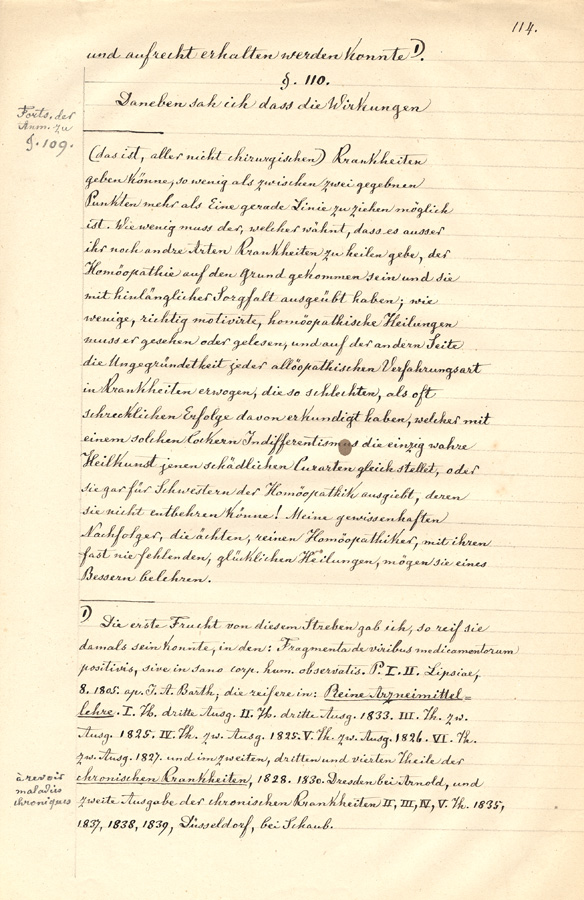 114.
und aufrecht erhalten werden konnte 1).
§. 110.
Daneben sah ich dass die Wirkungen
Forts. der
Anm. zu
§. 109.
(das ist, aller nicht chirurgischen) Krankheiten
geben könne, so wenig als zwischen zwei gegebnen
Punkten mehr als Eine gerade Linie zu ziehen möglich
ist. Wie wenig muss der, welcher wähnt, dass es ausser
ihr noch andre Arten Krankheiten zu heilen gebe, der
Homöopathie auf den Grund gekommen sein und sie
mit hinlänglicher Sorgfalt ausgeübt haben; wie
wenige, richtig motivirte, homöopathische Heilungen
muss er gesehen oder gelesen, und auf der andern Seite
die Ungegründetheit jeder allöopathischen Verfahrungsart
in Krankheiten erwogen, die so schlechten, als oft
schrecklichen Erfolge davon erkundigt haben, welcher mit
einem solchen lockern Indifferentismus die einzig wahre
Heilkunst jenen schädlichen Curarten gleich stellet, oder
sie gar für Schwestern der Homöopathik ausgiebt, deren
sie nicht entbehren könne! Meine gewissenhaften
Nachfolger, die ächten, reinen Homöopathiker, mit ihren
fast nie fehlenden, glücklichen Heilungen, mögen sie eines
Bessern belehren.
1)
Die erste Frucht von diesem Streben gab ich, so reif sie
damals sein konnte, in den: Fragmenta de viribus medicamentorum
positivis, sive in sano corp. hum. observatis. P. I. II. Lipsiae,
8. 1805. ap. J. A. Barth; die reifere in: Reine Arzneimittel=
lehre. I. Th. dritte Ausg. II. Th. dritte Ausg. 1833. III. Th. zw.
Ausg. 1825. IV. Th. zw. Ausg. 1825. V. Th. zw. Ausg. 1826. VI. Th.
zw. Ausg. 1827. und im zweiten, dritten und vierten Theile der
chronischen Krankheiten, 1828. 1830. Dresden bei Arnold, und
zweite Ausgabe der chronischen Krankheiten II, III, IV, V. Th. 1835,
1837, 1838, 1839, Düsseldorf, bei Schaub.
à revoir
maladies
chroniques